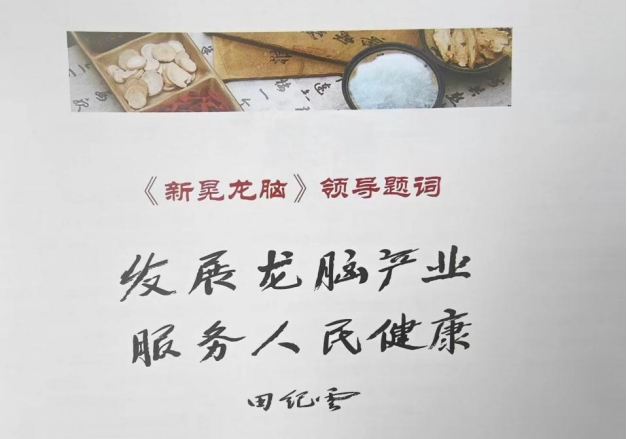 《新晃龙脑》领导题词
发展龙脑产业
服务人民健康
田纪云